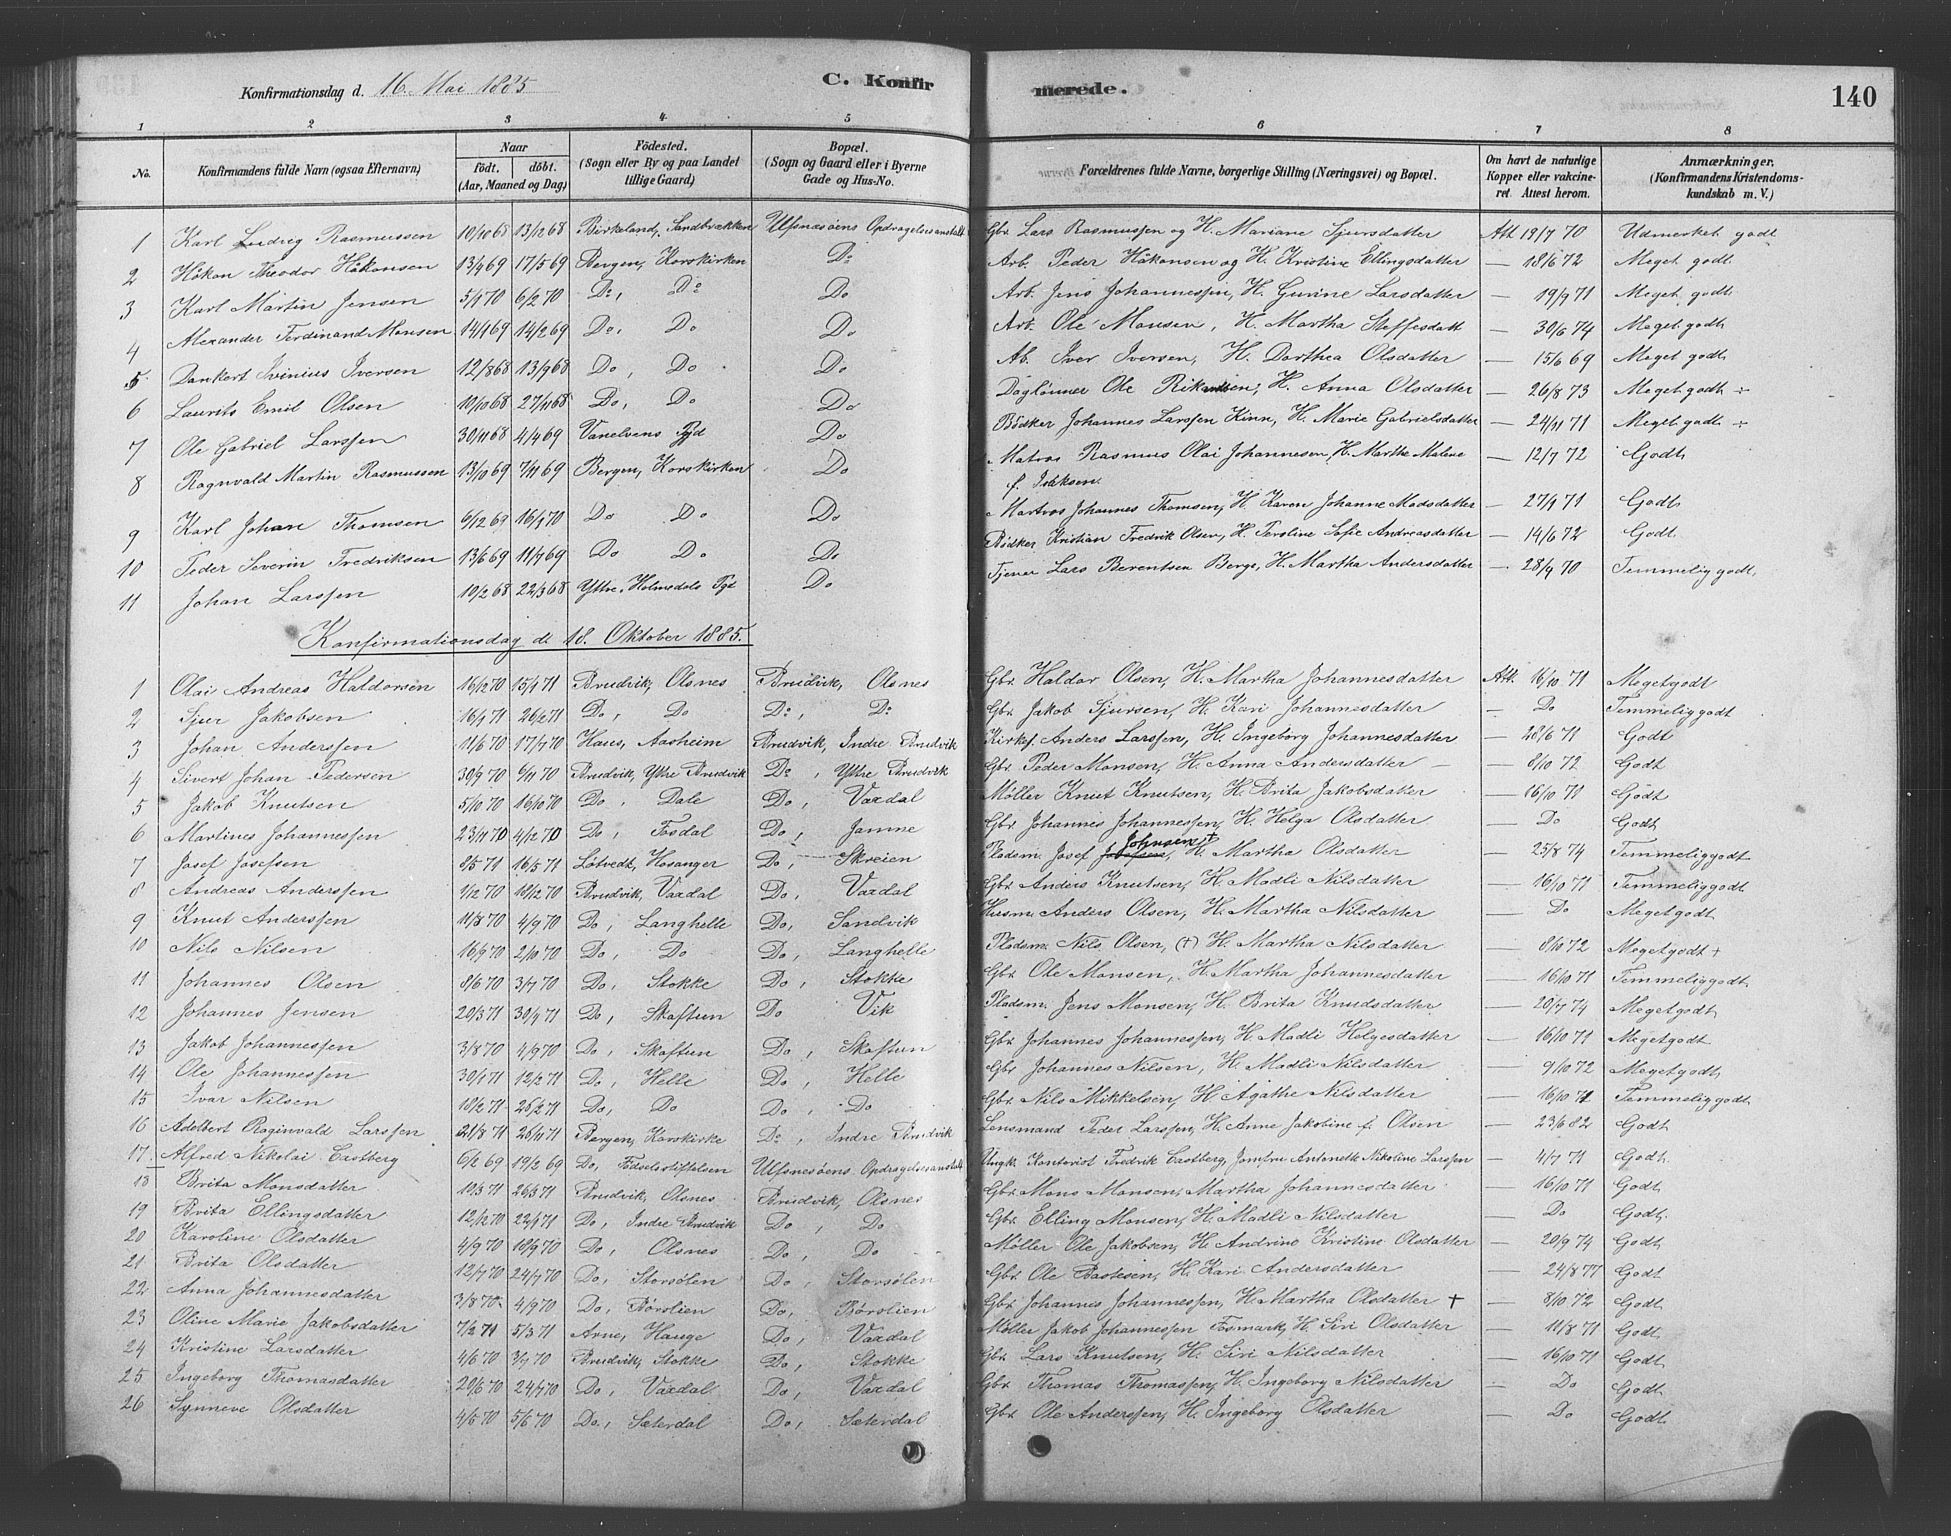 Konfirmationsdag d. 16. Mai 1885 C. Konfirmerede. 140
1 2 3 4 5 6 7 8
No. Konfirmandens fulde Navn (ogsaa Efternavn) Naar født. døbt. (Aar, Maaned og Dag) Fødested. (Sogn eller By og paa Landet tillige Gaard) Bopæl. (Sogn og Gaard eller i Byerne Gade og Hus-No. Forældrenes fulde Navne, borgerlige Stilling (Næringsvei) og Bopæl. Om havt de naturlige Kopper eller vakcineret Attest herom. Anmærkninger. (Konfirmandens Kristendomskundskab m. V.)
1 Karl Ludvig Rasmussen 10/10 68 13/12 68 Birkeland, Sandbrækken Ulfsnæsöens Opdragelsesanstalt Gbr. Lars Rasmussen og H. Mariane Sjursdatter Att 19/7 70 Udmerket godt
2 Håkon Theodor Håkonsen 13/4 69 17/5 69 Bergen, Korskirken Do Arb. Peder Håkonsen og H. Kristine Ellingsdatter — 18/6 72 Meget godt
3 Karl Martin Jensen 5/1 70 6/2 70 Do, Do Do Arb. Jens Johannessen, H. Gurine Larsdatter — 19/9 71 Meget godt
4 Alexander Ferdinand Monsen 14/1 69 14/2 69 Do, Do Do Arb. Ole Monsen, H. Martha Steffesdatt — 30/6 74 Meget godt
5 Dankert Ivinius Iversen 12/8 68 13/9 68 Do, Do Do Ab. Iver Iversen, H. Dorthea Olsdatter — 15/6 69 Meget godt
6 Laurits Emil Olsen 10/10 68 27/11 68 Do, Do Do Daglönner Ole, H. Anna Olsdatter — 26/8 73 Meget godt ÷
7 Ole Gabriel Larssen 30/11 68 4/4 69 Vanelvens Pgd Do Bödker Johannes Larssen Kinn, H. Marie Gabrielsdatter — 24/11 71 Meget godt ÷
8 Ragnvald Martin Rasmussen 13/10 69 7/11 69 Bergen, Korskirken Do Matros Rasmus Olai Johannesen, H. Marthe Malene — 12/7 72 Godt
f.
9 Karl Johan Thomsen 6/12 69 16/1 70 Do Do Do Martros Johannes Thomsen, H. Karen Johanne Madsdatter — 27/9 71 Godt
10 Peder Severin Fredriksen 13/6 69 11/7 69 Do Do Do Bödker Kristian Fredrik Olsen, H. Teroline Sofie Andreasdatter — 14/6 72 Godt
11 Johan Larssen 10/2 68 22/3 68 Yttre Holmedals Pgd Do Tjener Lars Berentsen Berge, H. Martha Andersdatter — 28/9 70 Temmelig godt,
Konfirmationsdag d. 18. Oktober 1885.
1 Olai Andreas Haldorsen 16/12 70 15/1 71 Brudvik, Olsnes Brudvik, Olsnes Gbr. Haldor Olsen, H. Martha Johannesdatter Att. 16/10 71 Megetgodt
2 Sjur Jakobsen 16/1 71 26/2 71 Do, Do Do, Do Gbr. Jakob Sjursen, H. Kari Johannesdatter — Do Temmeliggodt
3 Johan Anderssen 11/6 70 17/7 70 Haus, Aasheim Brudvik, Indre Brudvik Kirks. Anders Larssen, H. Ingeborg Johannesdatter — 28/6 71 Godt
4 Sivert Johan Pedersen 30/9 70 6/11 70 Brudvik, Yttre Brudvik Do, Yttre Brudvik Gbr. Peder Monsen, H. Anna Andersdatter — 8/10 72 Godt
5 Jakob Knutsen 5/10 70 16/10 70 Do, Dale Do, Vaxdal Møller Knut Knutsen, H. Brita Jakobsdatter — 16/10 71 Godt
6 Martines Johannessen 23/11 70 4/12 70 Do, Fosdal Do, Jamne Gbr. Johannes Johannessen, H. Helga Olsdatter — Do Godt
7 Josef Josefsen 8/5 71 16/5 71 Lötvedt, Hosanger Do, Skreien Pladsm. Josef Josefsen Johnsen †, H. Martha Olsdatter — 25/8 74 Temmeliggodt
8 Andreas Anderssen 1/12 70 18/12 70 Brudvik, Vaxdal Do, Vaxdal Gbr. Anders Knutsen, H. Madli Nilsdatter — 16/10 71 Temmeliggodt
9 Knut Anderssen 11/8 70 4/9 70 Do, Langhelle Do, Sandvik Husm. Anders Olsen, H. Martha Nilsdatter — Do Megetgodt
10 Nils Nilsen 16/9 70 2/10 70 Do, Do Do, Langhelle Pladsm. Nils Olsen, (†) H. Martha Nilsdatter — 8/10 72 Megetgodt +
11 Johannes Olsen 8/6 70 3/7 70 Do, Stokke Do, Stokke Gbr. Ole Monsen, H. Martha Johannesdatter — 16/10 71 Temmeliggodt,
12 Johannes Jensen 20/3 71 30/4 71 Do, Skaftun Do Vik Pladsm. Jens Monsen, H. Brita Knudsdatter — 20/7 74 Megetgodt
13 Jakob Johannessen 3/8 70 4/9 70 Do, Skaftun Do, Skaftun Gbr. Johannes Johannessen, H. Madli Helgesdatter — 16/10 71 Megetgodt
14 Ole Johannessen 30/1 71 12/2 71 Do, Helle Do, Helle Gbr. Johannes Nilsen, H. Madli Nilsdatter — 9/10 72 Megetgodt
15 Ivar Nilsen 18/2 71 26/2 71 Do, Do Do, Do Gbr. Nils Mikkelsen, H. Agathe Nilsdatter — 16/10 71 Temmeliggodt
16 Adelbert Raginvald Larssen 21/8 71 26/11 71 Bergen, Korskirke Do, Indre Brudvik Lensmand Peder Larssen, H. Anne Jakobine f. Olsen — 23/6 82 Godt
17 Alfred Nikolai Eastberg 6/2 69 19/2 69 Do, Fødselsstiftelsen Ulfsnesöens Opdragelsesanstalt Ungk. Kontorist Fredrik Eastberg, Jomfru Antonette Nikoline Larsen — 4/7 71 Godt
18 Brita Monsdatter 10/3 71 26/3 71 Brudvik, Olsnes Brudvik, Olsnes Gbr. Mons Monsen, Martha Johannesdatter — 16/10 71 Godt
19 Brita Ellingsdatter 12/12 70 22/1 71 Do, Indre Brudvik Do, Do Gbr. Elling Monsen, H. Madli Nilsdatter — Do Godt
20 Karoline Olsdatter 4/9 70 18/9 70 Do, Olsnes Do, Do Møller Ole Jakobsen, H. Andrine Kristine Olsdatter — 20/9 74 Godt
21 Brita Olsdatter 12/7 70 24/7 70 Do, Storsölen Do, Storsölen Gbr. Ole Bastesen, H. Kari Andersdatter — 24/8 77 Godt
22 Anna Johannesdatter 3/8 70 4/9 70 Do, Börslien Do, Börslien Gbr. Johannes Johannessen, H. Martha Olsdatter † — 8/10 72 Godt
23 Oline Marie Jakobsdatter 7/2 71 5/3 71 Arne, Hauge Do, Vaxdal Møller Jakob Johannessen Fosmark, H. Siri Olsdatter — 11/8 71 Godt
24 Kristine Larsdatter 4/6 70 3/7 70 Brudvik, Stokke Do, Stokke Gbr. Lars Knutsen, H. Siri Nilsdatter — 16/10 71 Godt
25 Ingeborg Thomasdatter 29/6 70 24/7 70 Do, Vaxdal Do, Vaxdal Gbr. Thomas Thomassen, H. Ingeborg Nilsdatter — Do Godt
26 Synneve Olsdatter 4/5 70 5/6 70 Do, Sæterdal Do, Sæterdal Gbr. Ole Anderssen, H. Ingeborg Olsdatter — Do Godt